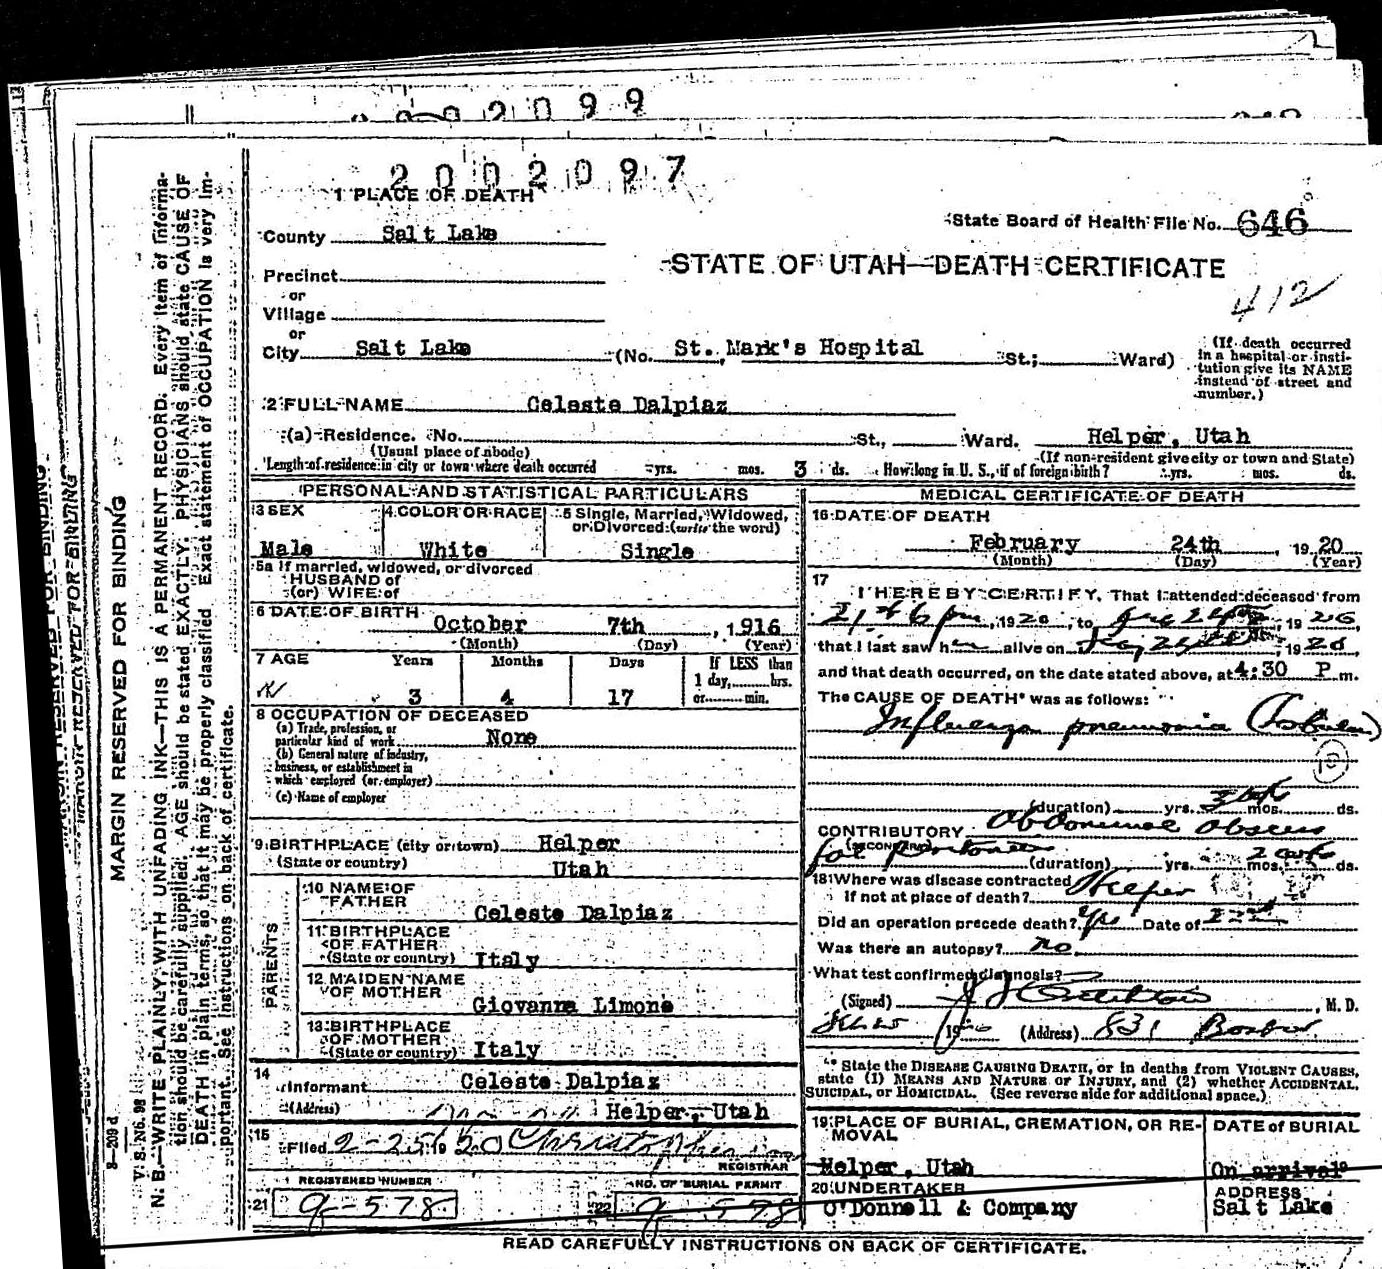 2002099
2002097
1 PLACE OF DEATH
State Board of Health File No. 646
County Salt Lake
STATE OF UTAH—DEATH CERTIFICATE
412
Precinct
or
Village
or
City Salt Lake (No. St. Mark's Hospital St.; Ward)
(If death occurred in a hospital or institution give its NAME instead of street and number.)
2 FULL NAME Celeste Dalpiaz
(a) Residence. No. St., Ward. Helper, Utah
(Usual place of abode) (If non-resident give city or town and State)
Length of residence in city or town where death occurred yrs. mos. 3 ds. How long in U. S., if of foreign birth? yrs. mos. ds.
PERSONAL AND STATISTICAL PARTICULARS
3 SEX 4 COLOR OR RACE 5 Single, Married, Widowed, or Divorced (write the word)
Male White Single
5a If married, widowed, or divorced
HUSBAND of
(or) WIFE of
6 DATE OF BIRTH
October 7th, 1916
(Month) (Day) (Year)
7 AGE Years Months Days If LESS than
1 day, hrs.
3 4 17 or min.
8 OCCUPATION OF DECEASED
(a) Trade, profession, or
particular kind of work None
(b) General nature of industry,
business, or establishment in
which employed (or employer)
(c) Name of employer
9 BIRTHPLACE (city or town) Helper
(State or country) Utah
PARENTS
10 NAME OF
FATHER
Celeste Dalpiaz
11 BIRTHPLACE
OF FATHER
(State or country) Italy
12 MAIDEN NAME
OF MOTHER
Giovanna Limone
13 BIRTHPLACE
OF MOTHER
(State or country) Italy
14
Informant Celeste Dalpiaz
(Address) Helper, Utah
15
Filed 2-25 1920
REGISTRAR
REGISTERED NUMBER NO. OF BURIAL PERMIT
21 9-578 22 9-578
MEDICAL CERTIFICATE OF DEATH
16 DATE OF DEATH
February 24th, 1920
(Month) (Day) (Year)
17
I HEREBY CERTIFY, That I attended deceased from
6 pm, 1920, to 1920,
that I last saw h alive on 1920,
and that death occurred, on the date stated above, at 4:30 P. m.
The CAUSE OF DEATH* was as follows:
Influenza pneumonia
(duration) yrs. mos. ds.
CONTRIBUTORY
(SECONDARY)
(duration) yrs. mos. ds.
18 Where was disease contracted Helper
if not at place of death?
Did an operation precede death? Yes Date of
Was there an autopsy? no
What test confirmed diagnosis?
(Signed) , M. D.
19 (Address) 831 Boston
* State the DISEASE CAUSING DEATH, or in deaths from VIOLENT CAUSES,
state (1) MEANS AND NATURE OF INJURY, and (2) whether ACCIDENTAL,
SUICIDAL, or HOMICIDAL. (See reverse side for additional space.)
19 PLACE OF BURIAL, CREMATION, OR RE-
MOVAL
DATE of BURIAL
Helper, Utah On arrival
20 UNDERTAKER ADDRESS
O'Donnell & Company Salt Lake
READ CAREFULLY INSTRUCTIONS ON BACK OF CERTIFICATE.
MARGIN RESERVED FOR BINDING
N. B.—WRITE PLAINLY, WITH UNFADING INK—THIS IS A PERMANENT RECORD. Every item of informa-
tion should be carefully supplied. AGE should be stated EXACTLY. PHYSICIANS should state CAUSE OF
DEATH in plain terms, so that it may be properly classified. Exact statement of OCCUPATION is very im-
portant. See instructions on back of certificate.